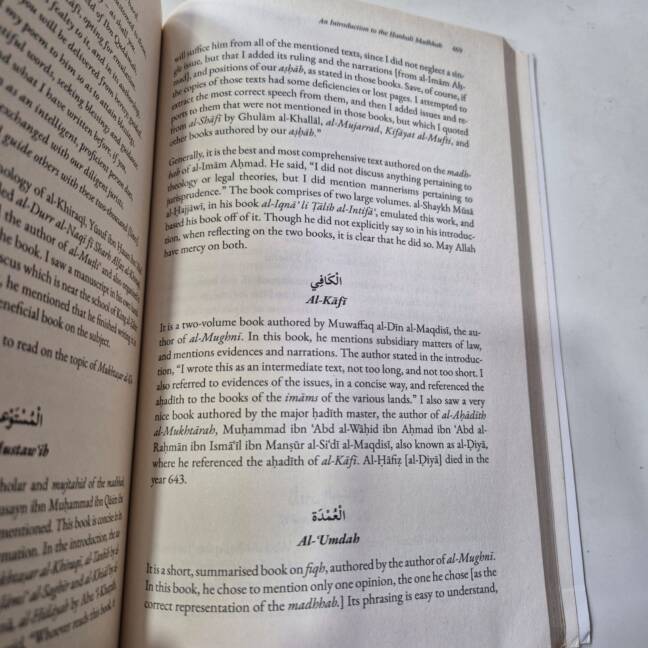 Qadisiyyah,
craft, opting for emulation
s fealty to it, and it is, in
you will be delivered from
my poem to him so as to attain
utiful words, seeking blessings and guidance
d what I have written before, if you
as an intelligent, proficient person does
exchanged with our diligent
guide others with these two thousand
ology of al-Khiraqī, Yūsuf ibn
ed al-Durr al-Naqī fī Sharh Alfāẓ al-
the author of al-Muṭli' and also
the book. I saw a manuscript in his own
scus which is near the school of King
, he mentioned that he finished writing
eneficial book on the subject.
to read on the topic of Mukhtaṣar
الْمُسْتَوْعِب
Mustaw'ib
holar and mujtahid of the madhhab,
usayn ibn Muḥammad ibn
mentioned. This book is concise in
rmation. In the introduction, the
khtaṣar al-Khiraqī, al-Tanbīh by
Jāmi' al-Ṣaghīr and al-Khiṣāl by
al-Hidāyah by Abū 'l-Khaṭṭāb,
"Whoever reads this book, it
An Introduction to the Ḥanbalī Madhhab 469
will suffice him from all of the mentioned texts, since I did not neglect a sin-
gle issue, but that I added its ruling and the narrations [from al-Imām Aḥ-
mad], and positions of our aṣḥāb, as stated in those books. Save, of course, if
the copies of those texts had some deficiencies or lost pages. I attempted to
extract the most correct speech from them, and then I added issues and re-
ports to them that were not mentioned in those books, but which I quoted
from al-Shāfī by Ghulām al-Khallāl, al-Mujarrad, Kifāyat al-Mufti, and
other books authored by our aṣḥāb."
Generally, it is the best and most comprehensive text authored on the madh-
hab of al-Imām Aḥmad. He said, "I did not discuss anything pertaining to
theology or legal theories, but I did mention mannerisms pertaining to
jurisprudence." The book comprises of two large volumes. al-Shaykh Mūsā
al-Ḥajjāwī, in his book al-Iqnā' li Ṭālib al-Intifā', emulated this work, and
based his book off of it. Though he did not explicitly say so in his introduc-
tion, when reflecting on the two books, it is clear that he did so. May Allah
have mercy on both.
الْكَافِي
Al-Kāfī
It is a two-volume book authored by Muwaffaq al-Dīn al-Maqdisī, the au-
thor of al-Mughnī. In this book, he mentions subsidiary matters of law,
and mentions evidences and narrations. The author stated in the introduc-
tion, "I wrote this as an intermediate text, not too long, and not too short. I
also referred to evidences of the issues, in a concise way, and referenced the
aḥadīth to the books of the imāms of the various lands." I also saw a very
nice book authored by the major ḥadīth master, the author of al-Aḥādīth
al-Mukhtārah, Muḥammad ibn 'Abd al-Wāḥid ibn Aḥmad ibn 'Abd al-
Raḥmān ibn Ismā'īl ibn Manṣūr al-Si'dī al-Maqdisī, also known as al-Ḍiyā,
where he referenced the aḥadīth of al-Kāfī. Al-Ḥāfiẓ [al-Ḍiyā] died in the
year 643.
الْعُمْدَة
Al-'Umdah
It is a short, summarised book on fiqh, authored by the author of al-Mughnī.
In this book, he chose to mention only one opinion, the one he chose [as the
correct representation of the madhhab.] Its phrasing is easy to understand,